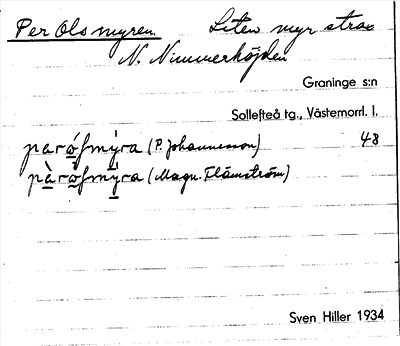 Per Ols myren Liten myr strax
N. Nimmerhöjden
Graninge s:n
Sollefteå tg., Västernorrl. l.
parófmýra (P. Johannesson) 48
pàrófmýra (Magn. Flämström)
Sven Hiller 1934